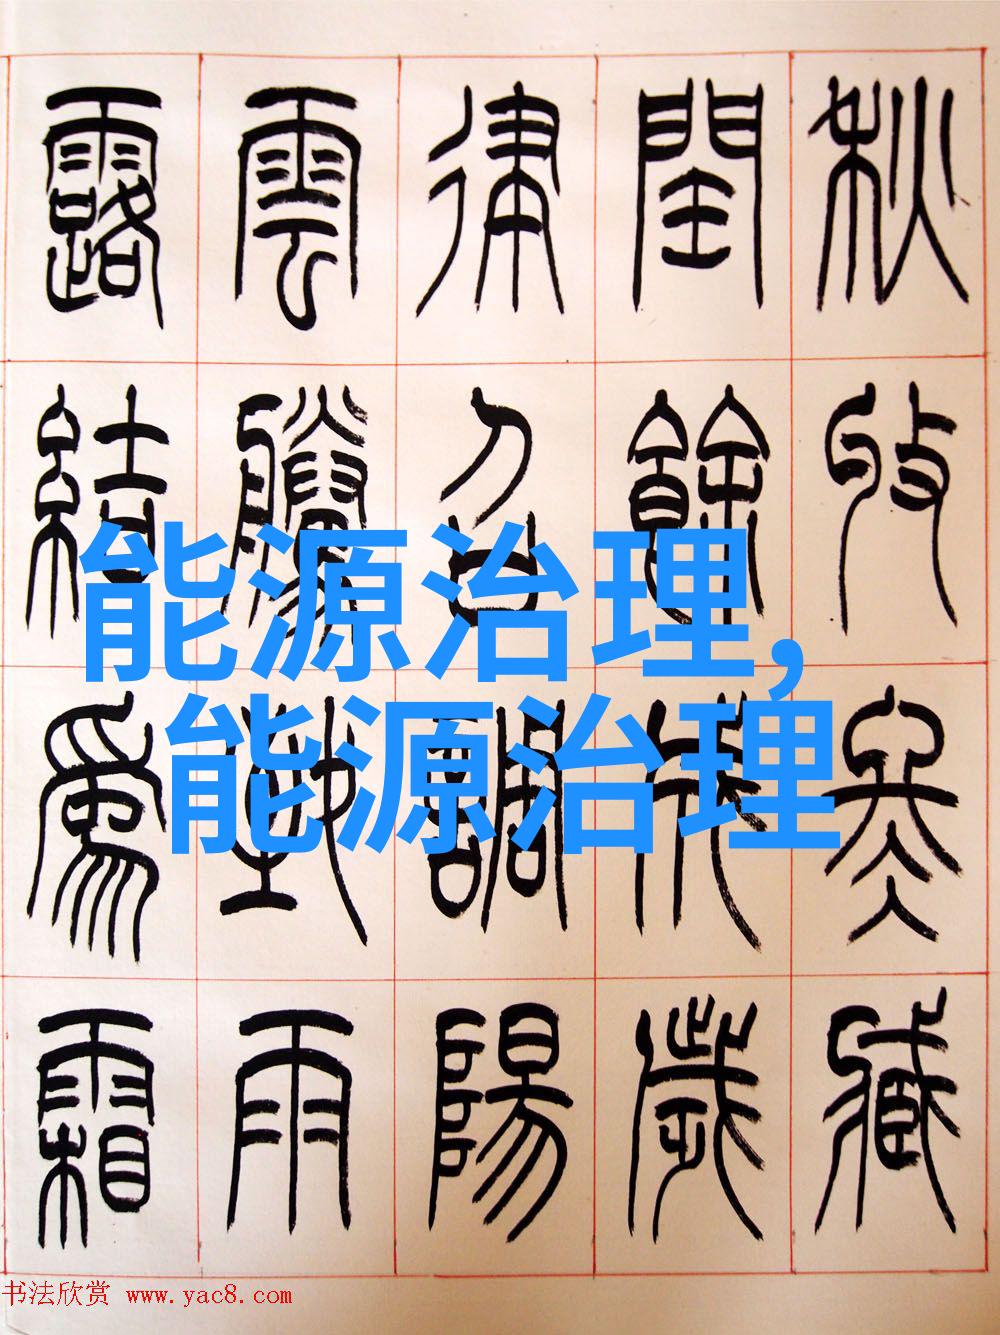 秋收冬藏
閏餘成歲
律召調陽
雲騰致雨
露結爲霜
能源治理,
能源治理
书法欣赏 www.yac8.com